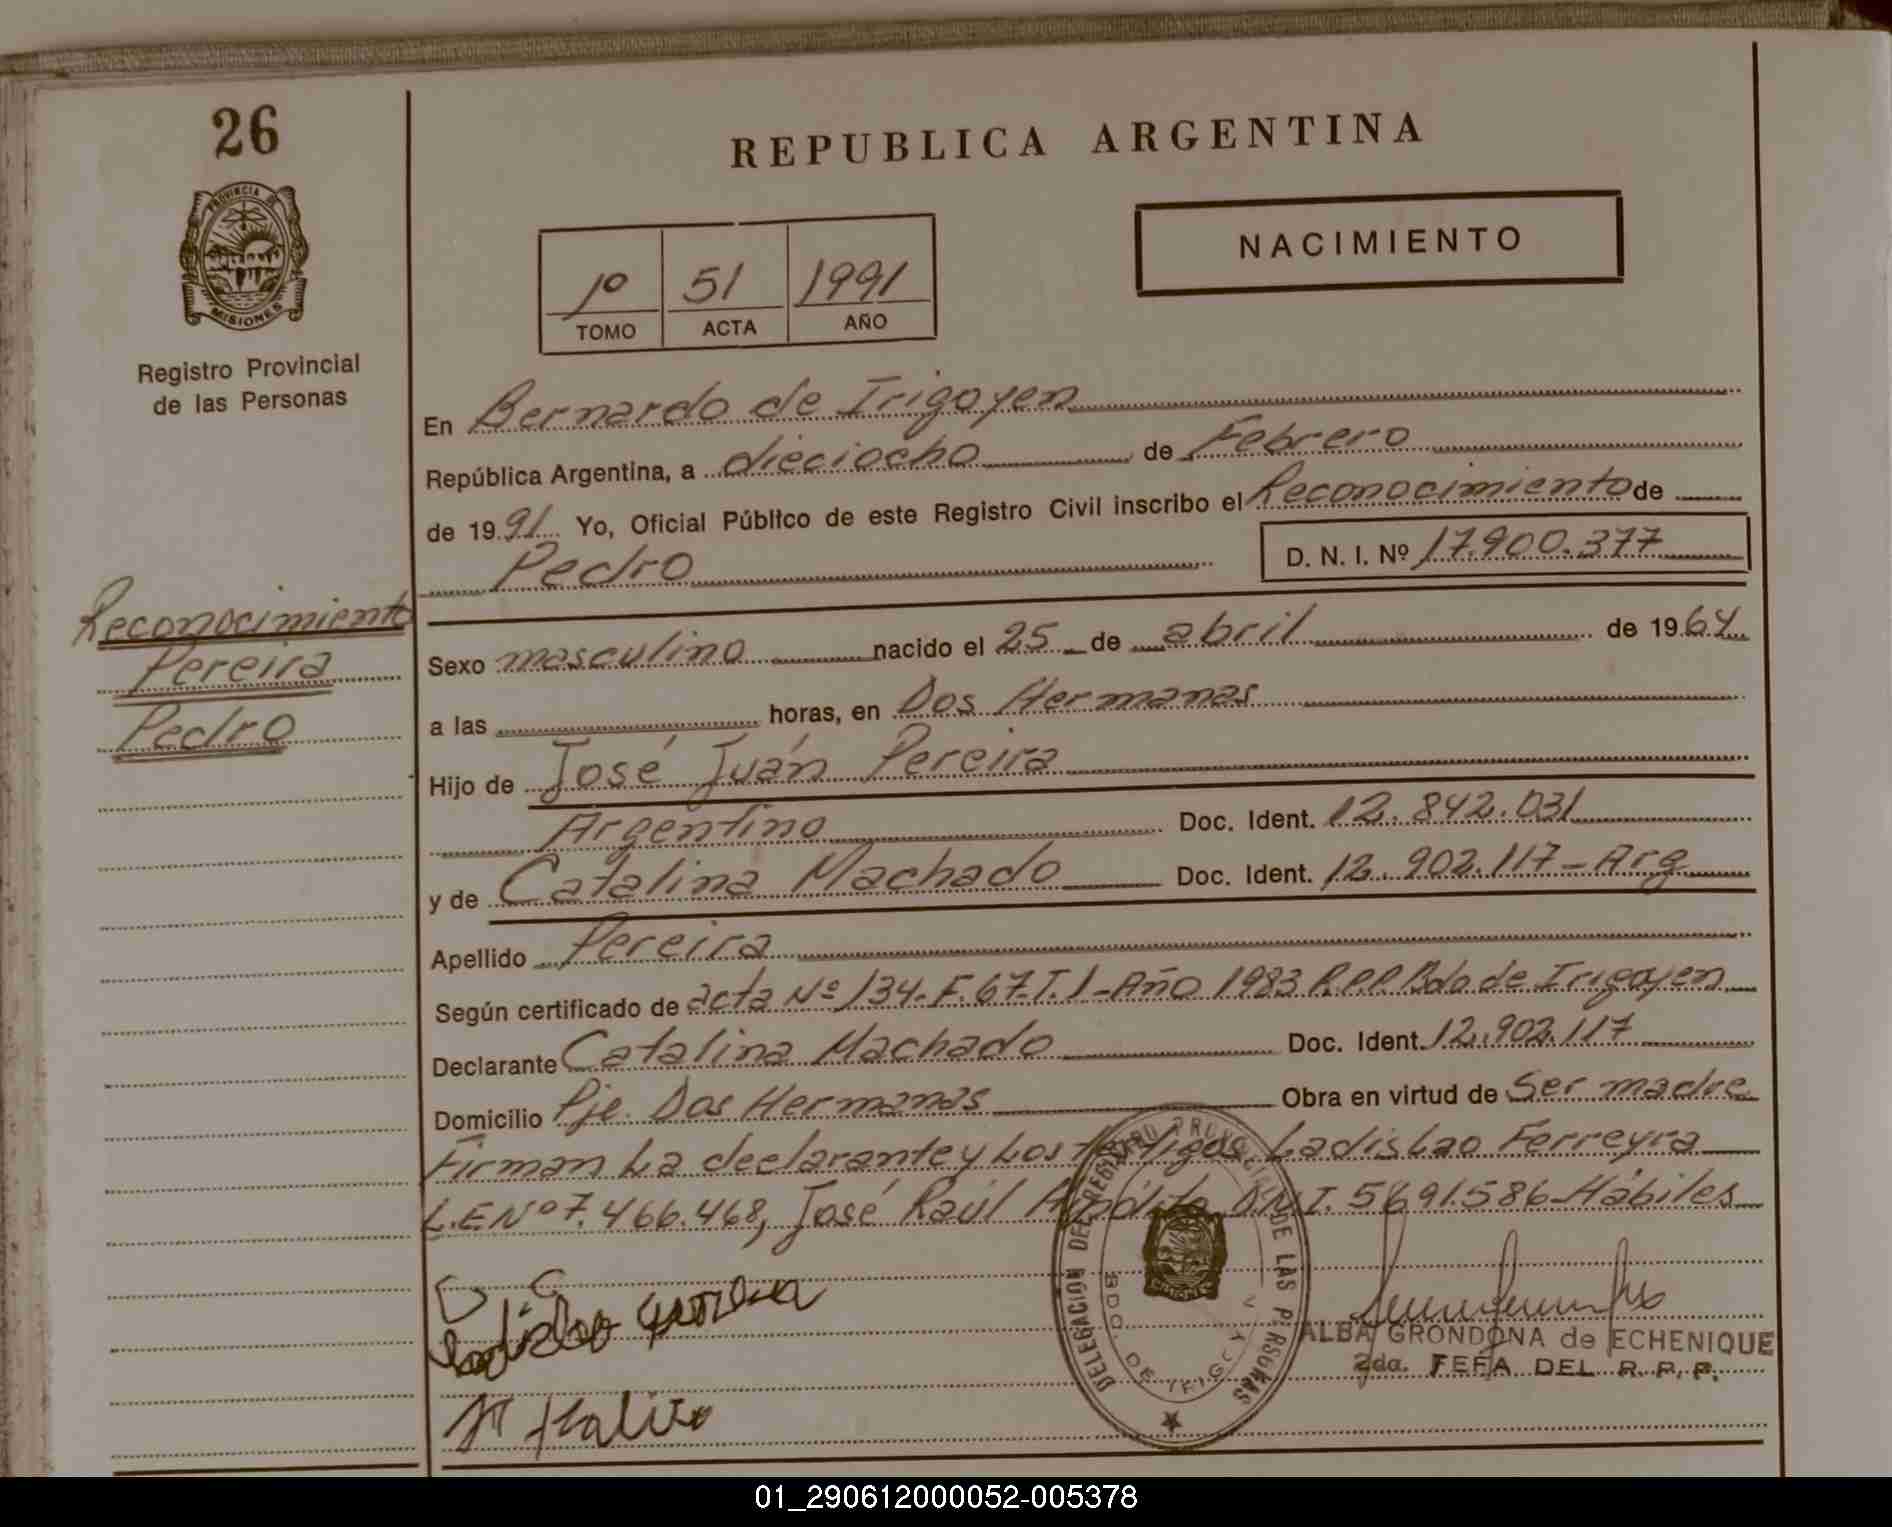 26
PROVINCIA DE
MISIONES
Registro Provincial
de las Personas
REPUBLICA ARGENTINA
NACIMIENTO
1º 51 1991
TOMO ACTA AÑO
En Bernardo de Irigoyen
República Argentina, a dieciocho de Febrero
de 1991 Yo, Oficial Público de este Registro Civil inscribo el Reconocimiento de
Pedro D. N. I. Nº 17.900.377
Reconocimiento
Pereira
Pedro
Sexo masculino nacido el 25 de abril de 1964
a las horas, en Dos Hermanas
Hijo de José Juán Pereira
Argentino Doc. Ident. 12.842.031
y de Catalina Machado Doc. Ident. 12.902.117-Arg
Apellido Pereira
Según certificado de acta Nº 134-F.67-T.1-Año 1983 R.P.P. Bdo de Irigoyen
Declarante Catalina Machado Doc. Ident. 12.902.117
Domicilio Pje. Dos Hermanas Obra en virtud de Ser madre
Firman La declarante y Los testigos, Ladislao Ferreyra
L.E Nº 7.466.468, José Raúl D.N.I. 5691.586-Hábiles
DELEGACION DEL REGISTRO PROVINCIAL DE LAS PERSONAS
BDO DE IRIGOYEN
MISIONES
ALBA GRONDONA de ECHENIQUE
2da. JEFA DEL R. P. P.
01_290612000052-005378